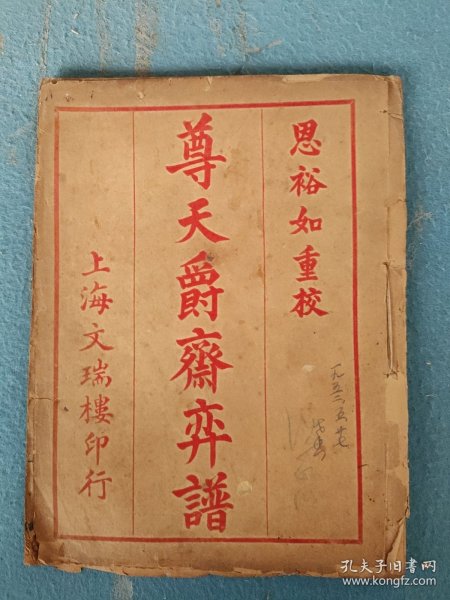 思裕如重校
尊天爵齋弈譜
上海文瑞樓印行
一九五二五廿七
孔夫子旧书网
www.kongfz.com